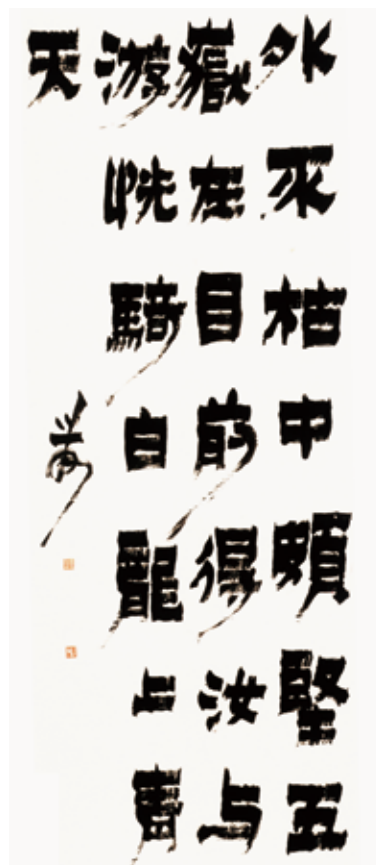 外不枯中頗堅五
嶽在目前得汝与
游恍騎白龍上青
天